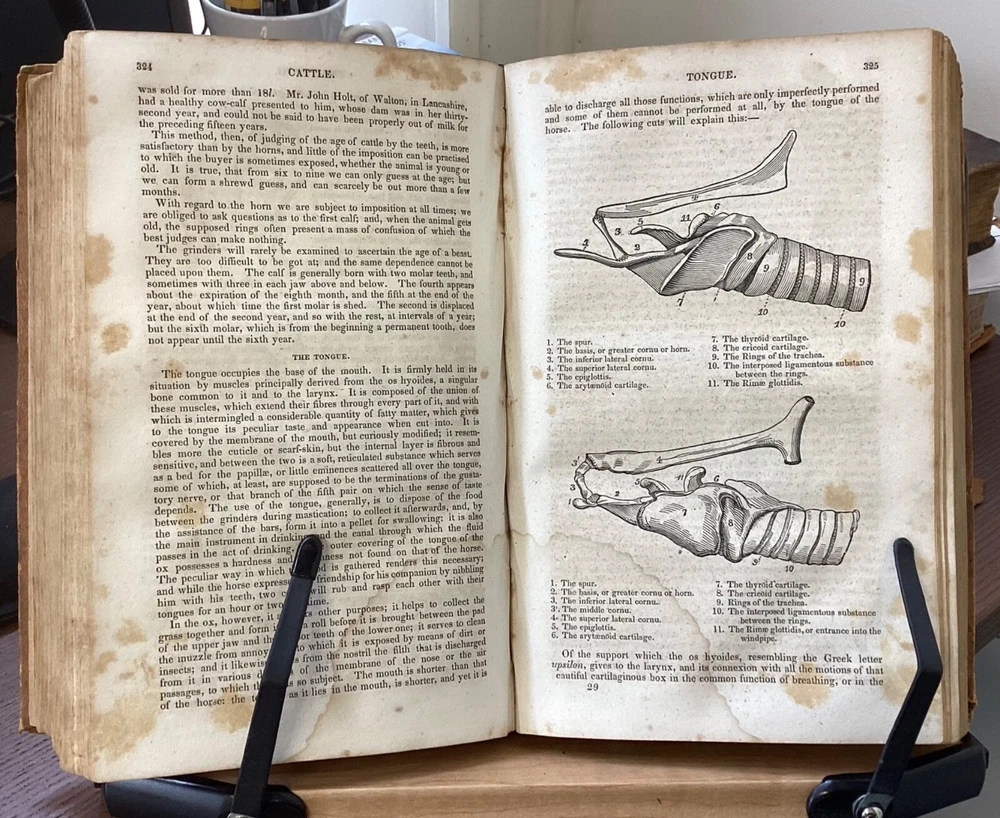 324
CATTLE.
was sold for more than 18l. Mr. John Holt, of Walton, in Lancashire,
had a healthy cow-calf presented to him, whose dam was in her thirty-
second year, and could not be said to have been properly out of milk for
the preceding fifteen years.
This method, then, of judging of the age of cattle by the teeth, is more
satisfactory than by the horns, and little of the imposition can be practised
to which the buyer is sometimes exposed, whether the animal is young or
old. It is true, that from six to nine we can only guess at the age; but
we can form a shrewd guess, and can scarcely be out more than a few
months.
With regard to the horn we are subject to imposition at all times; we
are obliged to ask questions as to the first calf; and, when the animal gets
old, the supposed rings often present a mass of confusion of which the
best judges can make nothing.
The grinders will rarely be examined to ascertain the age of a beast.
They are too difficult to be got at; and the same dependence cannot be
placed upon them. The calf is generally born with two molar teeth, and
sometimes with three in each jaw above and below. The fourth appears
about the expiration of the eighth month, and the fifth at the end of the
year, about which time the first molar is shed. The second is displaced
at the end of the second year, and so with the rest, at intervals of a year;
but the sixth molar, which is from the beginning a permanent tooth, does
not appear until the sixth year.
THE TONGUE.
The tongue occupies the base of the mouth. It is firmly held in its
situation by muscles principally derived from the os hyoides, a singular
bone common to it and to the larynx. It is composed of the union of
these muscles, which extend their fibres through every part of it, and with
which is intermingled a considerable quantity of fatty matter, which gives
to the tongue its peculiar taste and appearance when cut into. It is
covered by the membrane of the mouth, but curiously modified; it resem-
bles more the cuticle or scarf-skin, but the internal layer is fibrous and
sensitive, and between the two is a soft, reticulated substance which serves
as a bed for the papillæ, or little eminences scattered all over the tongue,
some of which, at least, are supposed to be the terminations of the gusta-
tory nerve, or that branch of the fifth pair on which the sense of taste
depends. The use of the tongue, generally, is to dispose of the food
between the grinders during mastication; to collect it afterwards, and, by
the assistance of the bars, form it into a pellet for swallowing: it is also
the main instrument in drinking and the canal through which the fluid
passes in the act of drinking. outer covering of the tongue of the
ox possesses a hardness and not found on that of the horse.
The peculiar way in which is gathered renders this necessary;
and while the horse friendship for his companion by nibbling
him with his teeth, two will rub and rasp each other with their
tongues for an hour or two
In the ox, however, it other purposes; it helps to collect the
grass together and form roll before it is brought between the pad
of the upper jaw and teeth of the lower one; it serves to clean
the muzzle from to which it is exposed by means of dirt or
insects; and it from the nostril the filth that is discharged
from it in various of the membrane of the nose or the air
passages, to which so subject. The mouth is shorter than that
of the horse: the as it lies in the mouth, is shorter, and yet it is
TONGUE.
325
able to discharge all those functions, which are only imperfectly performed
and some of them cannot be performed at all, by the tongue of the
horse. The following cuts will explain this:—
4
6
11
5
3
1
2
8
9
9
7
10
10
1. The spur.
2. The basis, or greater cornu or horn.
3. The inferior lateral cornu.
4. The superior lateral cornu.
5. The epiglottis.
6. The arytænoid cartilage.
7. The thyroid cartilage.
8. The cricoid cartilage.
9. The Rings of the trachea.
10. The interposed ligamentous substance
between the rings.
11. The Rimæ glottidis.
3'
4
3
5
11
6
1
2
7
8
10
1. The spur.
2. The basis, or greater cornu or horn.
3. The inferior lateral cornu.
3'. The middle cornu.
4. The superior lateral cornu.
5. The epiglottis.
6. The arytænoid cartilage.
7. The thyroid cartilage.
8. The cricoid cartilage.
9. Rings of the trachea.
10. The interposed ligamentous substance
between the rings.
11. The Rimæ glottidis, or entrance into the
windpipe.
Of the support which the os hyoides, resembling the Greek letter
upsilon, gives to the larynx, and its connexion with all the motions of that
cautiful cartilaginous box in the common function of breathing, or in the
29